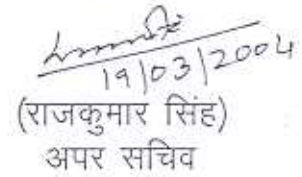 19/03/2004
(राजकुमार सिंह)
अपर सचिव